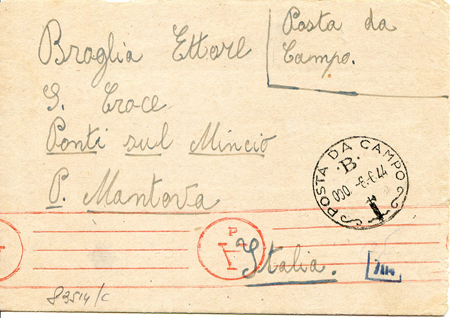 Braglia Ettore
S. Croce
Ponti sul Mincio
P. Mantova
Italia.
Posta da
Campo.
POSTA DA CAMPO
B.
000 -6.6.44
P
83514/C